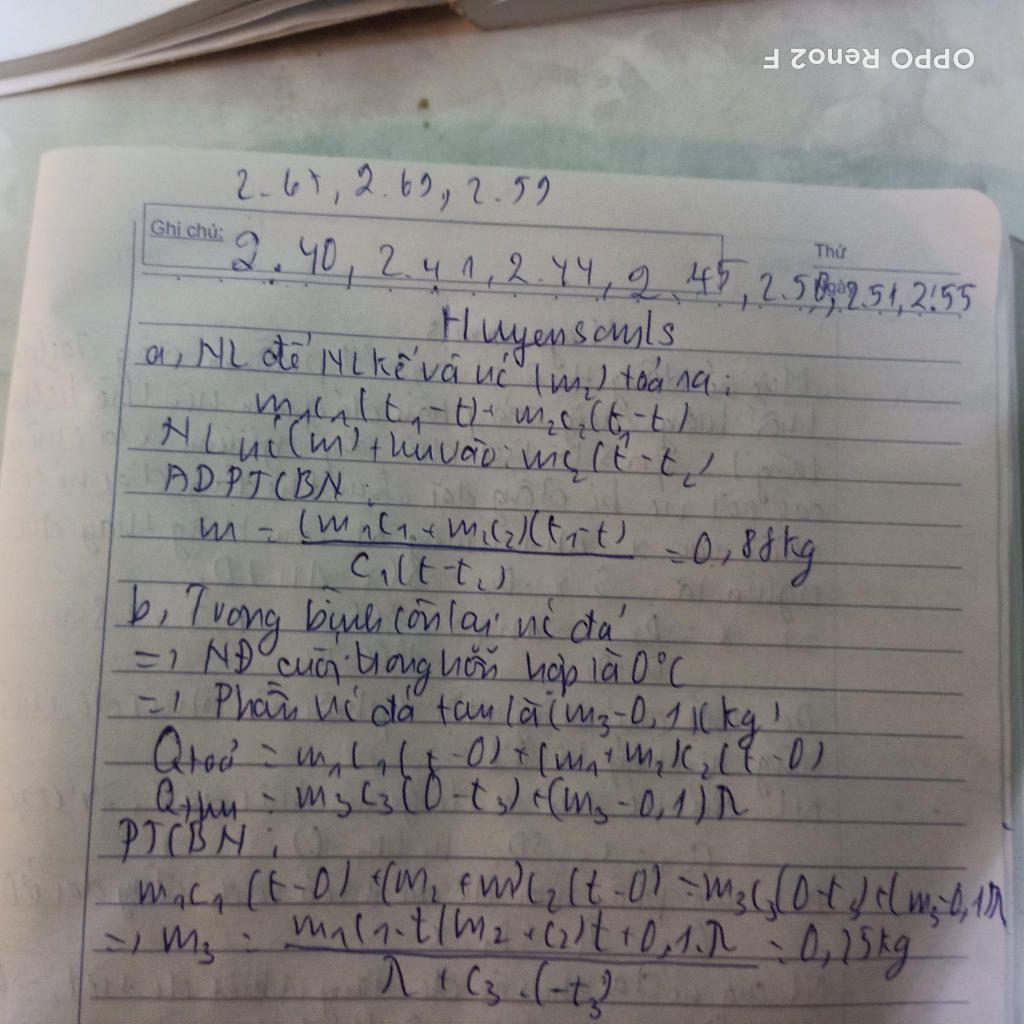 OPPO Reno2 F
2.65, 2.69, 2.59
Ghi chú: 2.40, 2.41, 2.44, 2.45, 2.50, 2.51, 2.55
Thứ
Huyensamls
a, NL để NL kế và nc (m₂) toả ra:
m₁c₁(t₁-t)+m₂c₂(t₁-t)
NL nc (m) thu vào: mc₂(t-t₂)
ADPTCBN:
m = (m₁c₁+m₂c₂)(t₁-t) / C₁(t-t₂) = 0,88kg
b, Trong bình còn lại nc đá
=) NĐ cuối trong hỗn hợp là 0°C
=) Phần nc đá tan là (m₃-0,1)(kg)
Qtoả = m₁c₁(t-0)+(m₁+m₂)c₂(t-0)
Qthu = m₃c₃(0-t₃)+(m₃-0,1)λ
PTCBN:
m₁c₁(t-0)+(m₂+m)c₂(t-0)=m₃c₃(0-t₃)+(m₃-0,1)λ
=) m₃ = m₁c₁.t(m₂+c₂)t+0,1.λ / λ+c₃.(-t₃) = 0,25kg